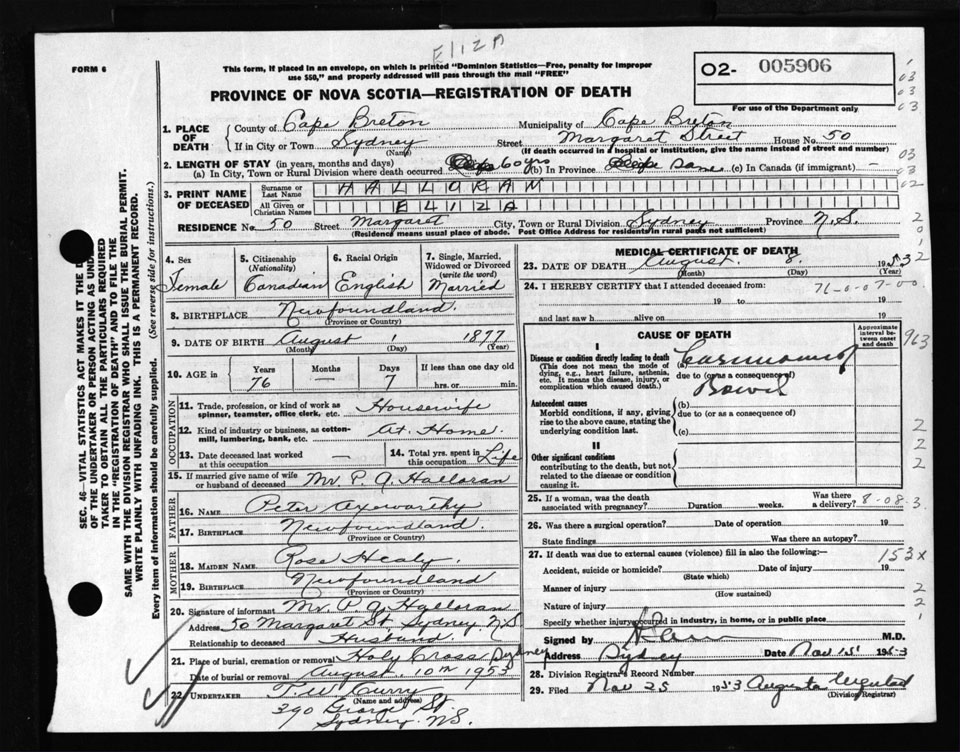 ELIZA
FORM 6
This form, if placed in an envelope, on which is printed "Dominion Statistics—Free, penalty for improper
use $50," and properly addressed will pass through the mail "FREE"
O2- 005906
For use of the Department only
PROVINCE OF NOVA SCOTIA—REGISTRATION OF DEATH
1. PLACE OF DEATH
County of Cape Breton Municipality of Cape Breton
If in City or Town Sydney Street Margaret Street House No. 50
(Name) (If death occurred in a hospital or institution, give the name instead of street and number)
2. LENGTH OF STAY (in years, months and days)
(a) In City, Town or Rural Division where death occurred 60 yrs (b) In Province same (c) In Canada (if immigrant) —
3. PRINT NAME OF DECEASED
Surname or Last Name HALLORAN
All Given or Christian Names ELIZA
RESIDENCE No. 50 Street Margaret City, Town or Rural Division Sydney Province N.S.
(Residence means usual place of abode. Post Office Address for residents in rural parts not sufficient)
SEC. 46—VITAL STATISTICS ACT MAKES IT THE D
OF THE UNDERTAKER OR PERSON ACTING AS UNDER
TAKER TO OBTAIN ALL THE PARTICULARS REQUIRED
IN THE "REGISTRATION OF DEATH" AND TO FILE THE
SAME WITH THE DIVISION REGISTRAR WHO SHALL ISSUE THE BURIAL PERMIT.
WRITE PLAINLY WITH UNFADING INK. THIS IS A PERMANENT RECORD.
Every item of information should be carefully supplied. (See reverse side for instructions.)
4. Sex
Female
5. Citizenship
(Nationality)
Canadian
6. Racial Origin
English
7. Single, Married,
Widowed or Divorced
(write the word)
Married
8. BIRTHPLACE Newfoundland
(Province or Country)
9. DATE OF BIRTH August 1 1877
(Month) (Day) (Year)
10. AGE in Years Months Days If less than one day old
76 — 7 hrs. or min.
OCCUPATION
11. Trade, profession, or kind of work as
spinner, teamster, office clerk, etc. Housewife
12. Kind of industry or business, as cotton-
mill, lumbering, bank, etc. At Home
13. Date deceased last worked
at this occupation —
14. Total yrs. spent in
this occupation Life
15. If married give name of wife
or husband of deceased Mr. P. J. Halloran
FATHER
16. NAME Peter Axeworthy
17. BIRTHPLACE Newfoundland
(Province or Country)
MOTHER
18. MAIDEN NAME Rose Healy
19. BIRTHPLACE Newfoundland
(Province or Country)
20. Signature of informant Mr. P. J. Halloran
Address 50 Margaret St. Sydney N.S
Relationship to deceased Husband
21. Place of burial, cremation or removal Holy Cross Sydney
Date of burial or removal August 10th 1953
22. UNDERTAKER T. W. Curry
(Name and address)
290 George St.
Sydney N.S.
MEDICAL CERTIFICATE OF DEATH
23. DATE OF DEATH August 8 1953
(Month) (Day) (Year)
24. I HEREBY CERTIFY that I attended deceased from:
19 to 19
and last saw h alive on 19
CAUSE OF DEATH
Approximate
interval be-
tween onset
and death
I
Disease or condition directly leading to death
(This does not mean the mode of
dying, e.g., heart failure, asthenia,
etc. It means the disease, injury, or
complication which caused death.)
(a) Carcinoma of
due to (or as a consequence of)
Bowel
Antecedent causes
Morbid conditions, if any, giving
rise to the above cause, stating the
underlying condition last.
(b)
due to (or as a consequence of)
(c)
II
Other significant conditions
contributing to the death, but not
related to the disease or condition
causing it.
25. If a woman, was the death
associated with pregnancy? Duration weeks. Was there
a delivery? 8-08-3
26. Was there a surgical operation? Date of operation 19
State findings Was there an autopsy?
27. If death was due to external causes (violence) fill in also the following:— 153x
Accident, suicide or homicide? Date of injury 19
(State which)
Manner of injury
(How sustained)
Nature of injury
Specify whether injury occurred in industry, in home, or in public place
Signed by M.D.
Address Sydney Date Nov 15 1953
28. Division Registrar's Record Number
29. Filed Nov 25 1953 Augusta
(Division Registrar)